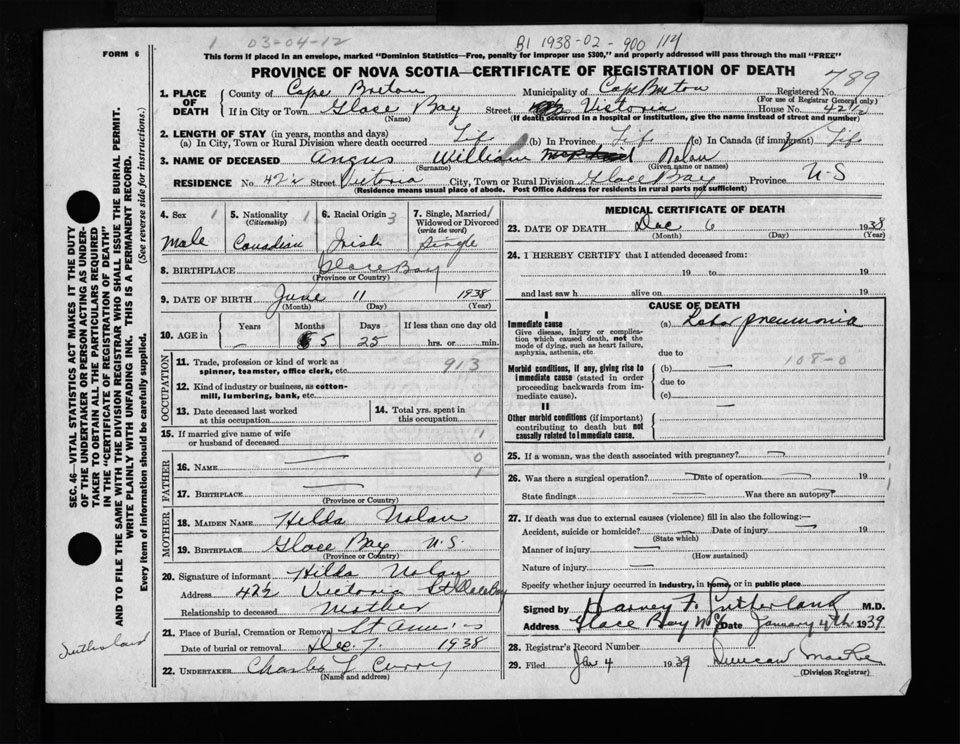 1 03-04-12
B1 1938-02-900 114
FORM 6
This form if placed in an envelope, marked "Dominion Statistics—Free, penalty for improper use $300," and properly addressed will pass through the mail "FREE"
PROVINCE OF NOVA SCOTIA—CERTIFICATE OF REGISTRATION OF DEATH
789
1. PLACE OF DEATH
County of Cape Breton Municipality of Cape Breton Registered No.
(For use of Registrar General only)
If in City or Town Glace Bay Street Victoria House No. 42½
(Name) (If death occurred in a hospital or institution, give the name instead of street and number)
2. LENGTH OF STAY (in years, months and days)
(a) In City, Town or Rural Division where death occurred Lif (b) In Province Lif (c) In Canada (if immigrant) Lif
3. NAME OF DECEASED Angus William Nolan
(Surname) (Given name or names)
RESIDENCE No. 42½ Street Victoria City, Town or Rural Division Glace Bay Province N S
(Residence means usual place of abode. Post Office Address for residents in rural parts not sufficient)
4. Sex 1
Male
5. Nationality 1
(Citizenship)
Canadian
6. Racial Origin 3
Irish
7. Single, Married, Widowed or Divorced
(write the word)
Single
8. BIRTHPLACE Glace Bay
(Province or Country)
9. DATE OF BIRTH June 11 1938
(Month) (Day) (Year)
10. AGE in
Years Months Days If less than one day old
— 5 25 hrs. or min.
OCCUPATION
11. Trade, profession or kind of work as spinner, teamster, office clerk, etc. 913
12. Kind of industry or business, as cotton-mill, lumbering, bank, etc.
13. Date deceased last worked at this occupation
14. Total yrs. spent in this occupation
15. If married give name of wife or husband of deceased 1
FATHER
16. NAME — 0
1
17. BIRTHPLACE —
(Province or Country)
MOTHER
18. MAIDEN NAME Hilda Nolan
19. BIRTHPLACE Glace Bay N.S.
(Province or Country)
20. Signature of informant Hilda Nolan
Address 42½ Victoria St Glace Bay
Relationship to deceased Mother
21. Place of Burial, Cremation or Removal St
Date of burial or removal Dec. 7. 1938
22. UNDERTAKER Charles L Curry
(Name and address)
MEDICAL CERTIFICATE OF DEATH
23. DATE OF DEATH Dec 6 1938
(Month) (Day) (Year)
24. I HEREBY CERTIFY that I attended deceased from:
19 to 19
and last saw h alive on 19
CAUSE OF DEATH
I
Immediate cause
Give disease, injury or complication which caused death, not the mode of dying, such as heart failure, asphyxia, asthenia, etc
(a) Lobar pneumonia
due to
108-0
Morbid conditions, if any, giving rise to immediate cause (stated in order proceeding backwards from immediate cause).
(b) —
due to
(c) —
II
Other morbid conditions (if important) contributing to death but not causally related to immediate cause.
25. If a woman, was the death associated with pregnancy? —
26. Was there a surgical operation? — Date of operation — 19
State findings — Was there an autopsy? —
27. If death was due to external causes (violence) fill in also the following:—
Accident, suicide or homicide? — Date of injury — 19
(State which)
Manner of injury —
(How sustained)
Nature of injury —
Specify whether injury occurred in industry, in home, or in public place
Signed by Harvey F. Sutherland M.D.
Address Glace Bay N S Date January 4th 1939
28. Registrar's Record Number
29. Filed Jan 4 1939 Duncan
(Division Registrar)
SEC. 46—VITAL STATISTICS ACT MAKES IT THE DUTY
OF THE UNDERTAKER OR PERSON ACTING AS UNDER-
TAKER TO OBTAIN ALL THE PARTICULARS REQUIRED
IN THE "CERTIFICATE OF REGISTRATION OF DEATH"
AND TO FILE THE SAME WITH THE DIVISION REGISTRAR WHO SHALL ISSUE THE BURIAL PERMIT.
WRITE PLAINLY WITH UNFADING INK. THIS IS A PERMANENT RECORD.
Every item of information should be carefully supplied. (See reverse side for instructions.)
Sutherland